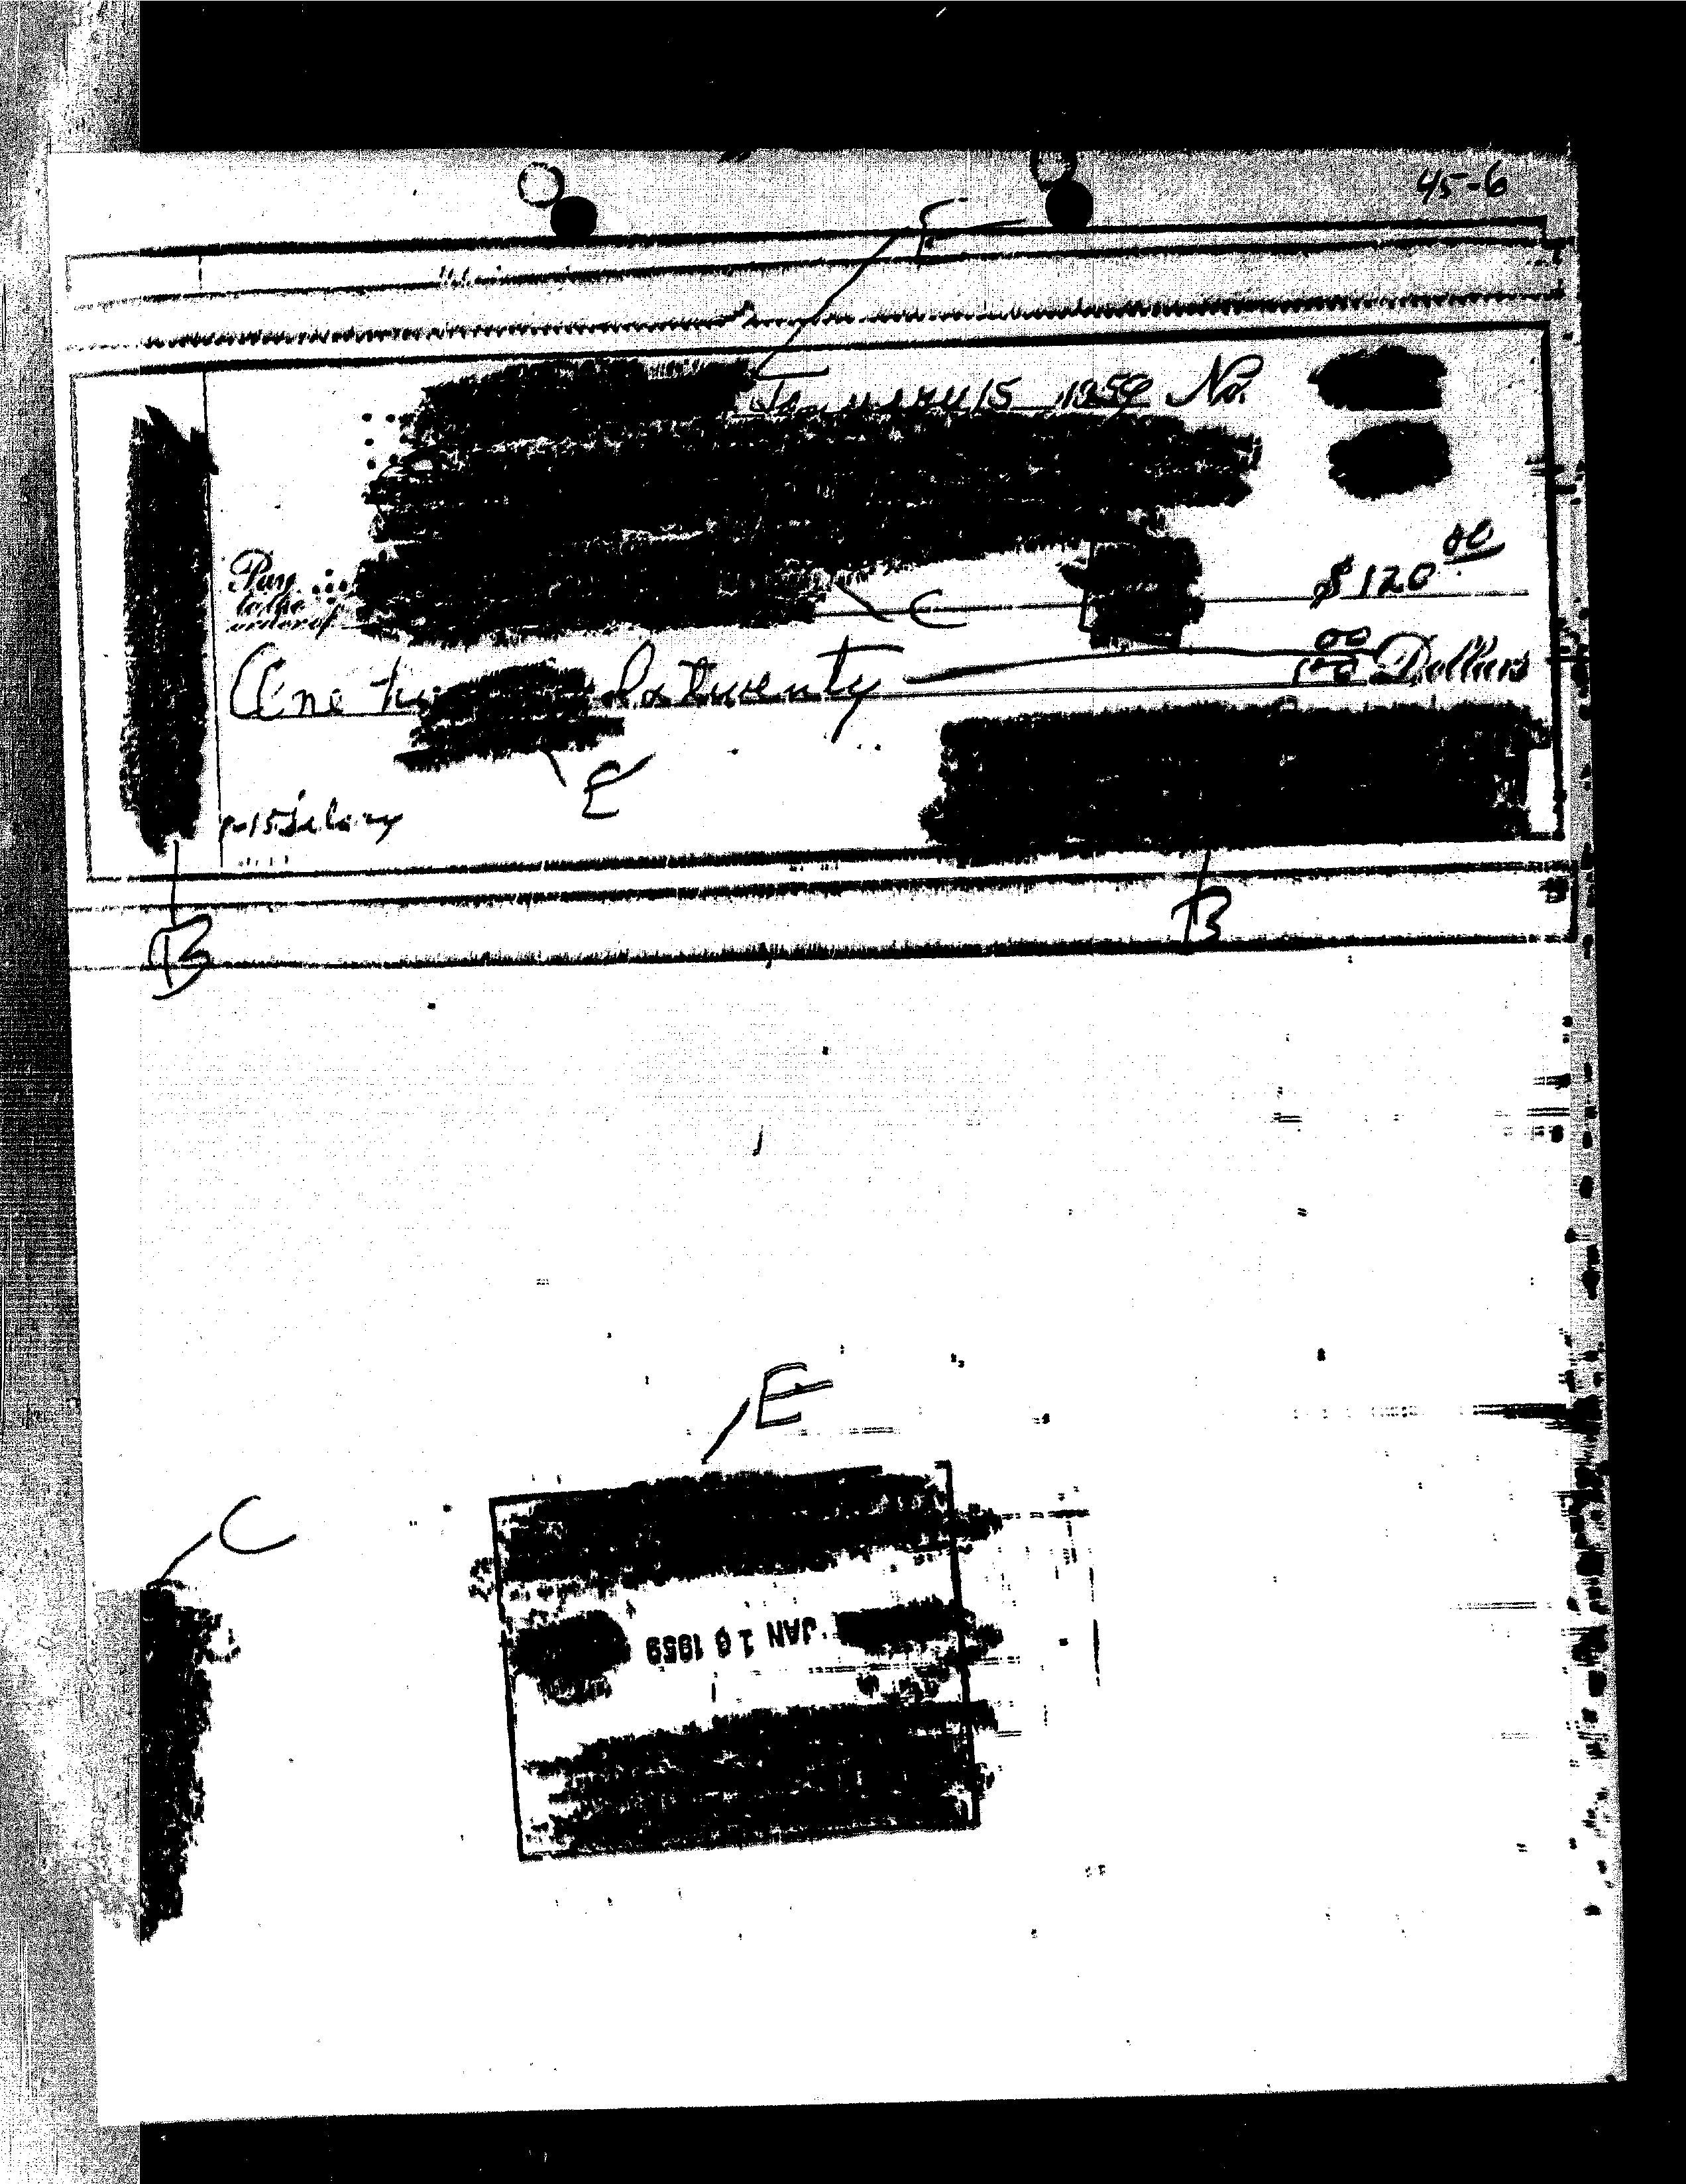 45-6
E
January 15 1959 No.
Pay
to the
order of
C
$120 00
One hundred twenty
00
100 Dollars
E
1-15 Salary
B
B
E
C
JAN 16 1959